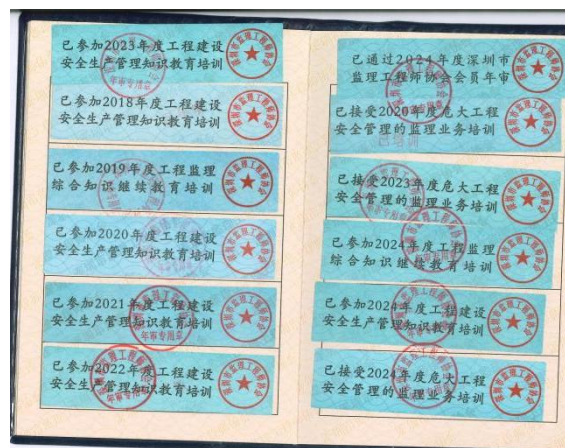 已参加2023年度工程建设
安全生产管理知识教育培训
已参加2018年度工程建设
安全生产管理知识教育培训
已参加2019年度工程监理
综合知识继续教育培训
已参加2020年度工程建设
安全生产管理知识教育培训
已参加2021年度工程建设
安全生产管理知识教育培训
年审专用章
已参加2022年度工程建设
安全生产管理知识教育培训
年审专用章
已通过2024年度深圳市
监理工程师协会会员年审
已接受2020年度危大工程
安全管理的监理业务培训
已培训
已接受2023年度危大工程
安全管理的监理业务培训
已参加2024年度工程监理
综合知识继续教育培训
已参加2024年度工程建设
安全生产管理知识教育培训
已接受2024年度危大工程
安全管理的监理业务培训